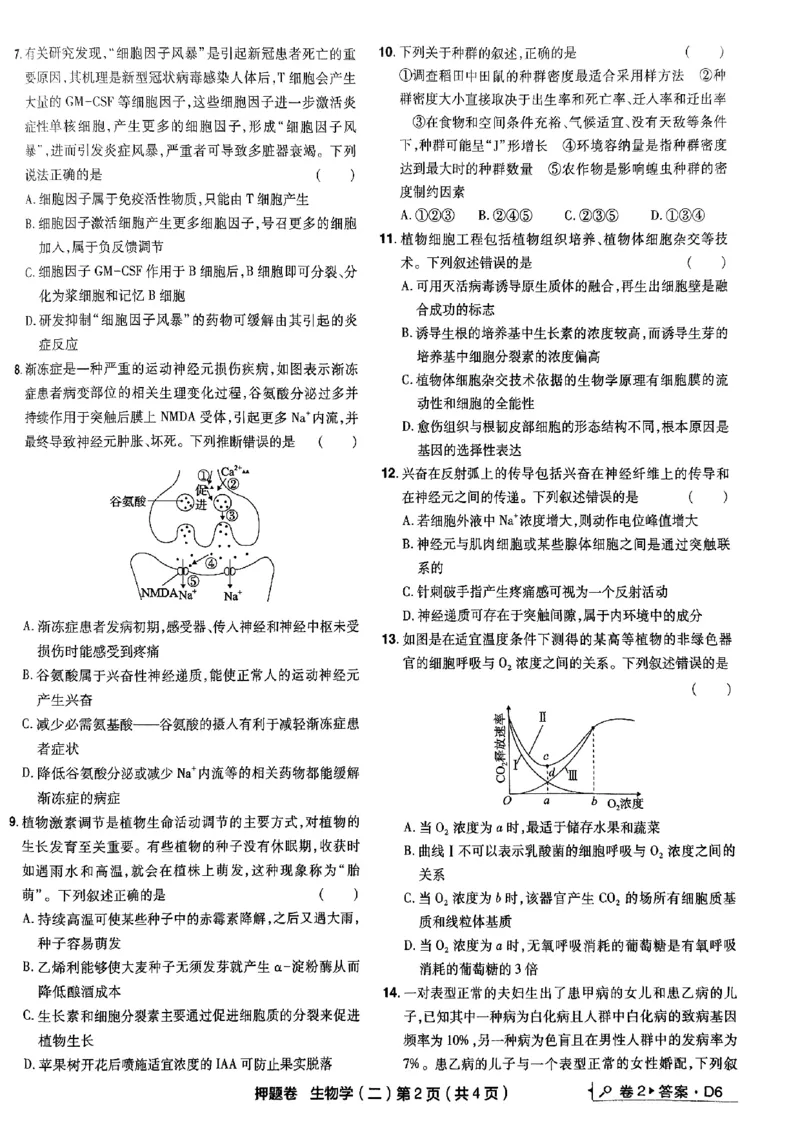 7.有关研究发现,“细胞因子风暴”是引起新冠患者死亡的重
要原因,其机理是新型冠状病毒感染人体后,T细胞会产生
大量的GM-CSF等细胞因子,这些细胞因子进一步激活炎
症性单核细胞,产生更多的细胞因子,形成“细胞因子风
暴”,进而引发炎症风暴,严重者可导致多脏器衰竭。下列
说法正确的是 ( )
A.细胞因子属于免疫活性物质,只能由T细胞产生
B.细胞因子激活细胞产生更多细胞因子,号召更多的细胞
加入,属于负反馈调节
C.细胞因子GM-CSF作用于B细胞后,B细胞即可分裂、分
化为浆细胞和记忆B细胞
D.研发抑制“细胞因子风暴”的药物可缓解由其引起的炎
症反应
8.渐冻症是一种严重的运动神经元损伤疾病,如图表示渐冻
症患者病变部位的相关生理变化过程,谷氨酸分泌过多并
持续作用于突触后膜上NMDA受体,引起更多Na⁺内流,并
最终导致神经元肿胀、坏死。下列推断错误的是 ( )
① Ca²⁺
②
促
谷氨酸 进
③
④
⑤
NMDA Na⁺ Na⁺
A.渐冻症患者发病初期,感受器、传入神经和神经中枢未受
损伤时能感受到疼痛
B.谷氨酸属于兴奋性神经递质,能使正常人的运动神经元
产生兴奋
C.减少必需氨基酸——谷氨酸的摄入有利于减轻渐冻症患
者症状
D.降低谷氨酸分泌或减少Na⁺内流等的相关药物都能缓解
渐冻症的病症
9.植物激素调节是植物生命活动调节的主要方式,对植物的
生长发育至关重要。有些植物的种子没有休眠期,收获时
如遇雨水和高温,就会在植株上萌发,这种现象称为“胎
萌”。下列叙述正确的是 ( )
A.持续高温可使某些种子中的赤霉素降解,之后又遇大雨,
种子容易萌发
B.乙烯利能够使大麦种子无须发芽就产生α-淀粉酶从而
降低酿酒成本
C.生长素和细胞分裂素主要通过促进细胞质的分裂来促进
植物生长
D.苹果树开花后喷施适宜浓度的IAA可防止果实脱落
10.下列关于种群的叙述,正确的是 ( )
①调查稻田中田鼠的种群密度最适合采用样方法 ②种
群密度大小直接取决于出生率和死亡率、迁入率和迁出率
③在食物和空间条件充裕、气候适宜、没有天敌等条件
下,种群可能呈“J”形增长 ④环境容纳量是指种群密度
达到最大时的种群数量 ⑤农作物是影响蝗虫种群的密
度制约因素
A.①②③ B.②④⑤ C.②③⑤ D.①③④
11.植物细胞工程包括植物组织培养、植物体细胞杂交等技
术。下列叙述错误的是 ( )
A.可用灭活病毒诱导原生质体的融合,再生出细胞壁是融
合成功的标志
B.诱导生根的培养基中生长素的浓度较高,而诱导生芽的
培养基中细胞分裂素的浓度偏高
C.植物体细胞杂交技术依据的生物学原理有细胞膜的流
动性和细胞的全能性
D.愈伤组织与根韧皮部细胞的形态结构不同,根本原因是
基因的选择性表达
12.兴奋在反射弧上的传导包括兴奋在神经纤维上的传导和
在神经元之间的传递。下列叙述错误的是 ( )
A.若细胞外液中Na⁺浓度增大,则动作电位峰值增大
B.神经元与肌肉细胞或某些腺体细胞之间是通过突触联
系的
C.针刺破手指产生疼痛感可视为一个反射活动
D.神经递质可存在于突触间隙,属于内环境中的成分
13.如图是在适宜温度条件下测得的某高等植物的非绿色器
官的细胞呼吸与O₂浓度之间的关系。下列叙述错误的是
( )
CO₂释放速率
Ⅱ
c
Ⅰ d Ⅲ
O a b O₂浓度
A.当O₂浓度为a时,最适于储存水果和蔬菜
B.曲线Ⅰ不可以表示乳酸菌的细胞呼吸与O₂浓度之间的
关系
C.当O₂浓度为b时,该器官产生CO₂的场所有细胞质基
质和线粒体基质
D.当O₂浓度为a时,无氧呼吸消耗的葡萄糖是有氧呼吸
消耗的葡萄糖的3倍
14.一对表型正常的夫妇生出了患甲病的女儿和患乙病的儿
子,已知其中一种病为白化病且人群中白化病的致病基因
频率为10%,另一种病为色盲且在男性人群中的发病率为
7%。患乙病的儿子与一个表型正常的女性婚配,下列叙
押题卷 生物学(二)第2页(共4页)
卷2▸答案·D6